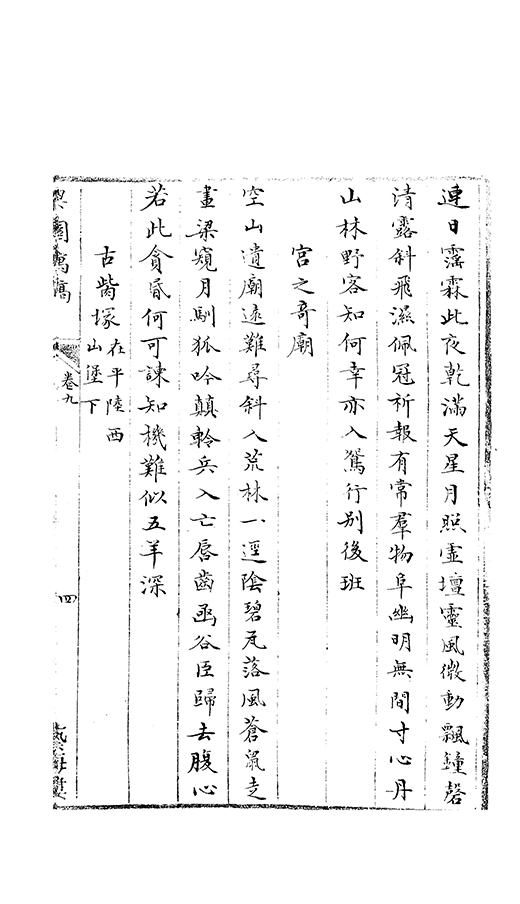 連日霶霖此夜乾滿天星月照雲壇靈風微動飄鐘磬
清露斜飛濕佩冠祈報有常羣物阜幽明無間寸心丹
山林野客知何幸亦入鴛行別後班
宮之奇廟
空山遺廟遠難尋斜入荒林一逕陰碧瓦落風蒼鼠走
畫梁窺月馴狐吟顛軨兵入亡唇齒函谷臣歸去腹心
若此貪昏何可諫知機難似五羊深
古觜塚
在平陸西
山堡下
卷九
四